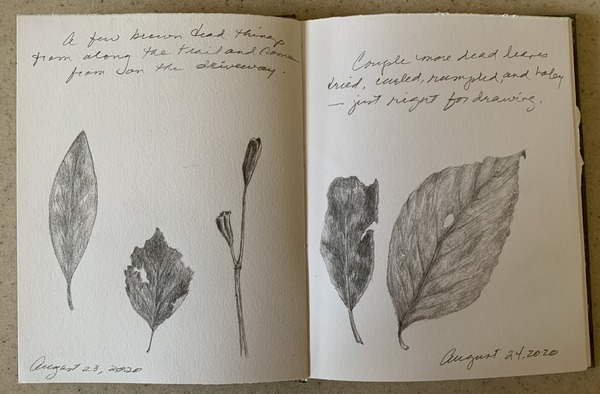 A few brown dead things
from along the trail and some
from on the driveway.
August 23, 2020
Couple more dead leaves
dried, curled, rumpled, and holey
— just right for drawing.
August 24, 2020